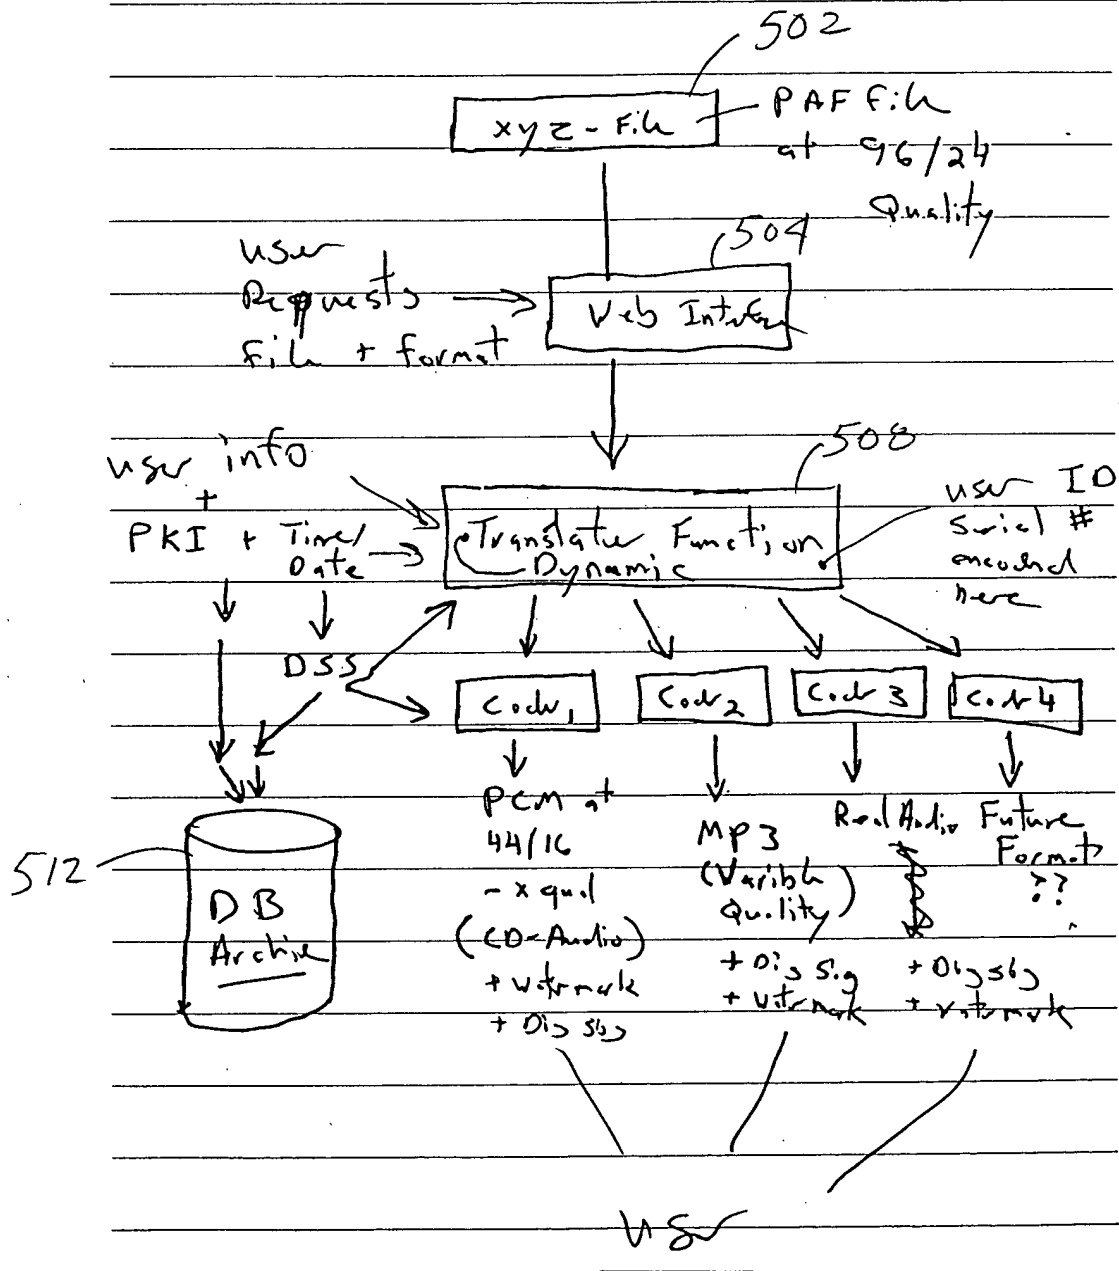 502
xyz-File
PAF File
at 96/24
Quality
504
User
Requests
File + format
Web Interface
508
user info
+
PKI + Time/
Date
Translator Function
Dynamic
user ID
Serial #
encoded
here
DSS
Codr 1
Codr 2
Codr 3
Codr 4
512
DB
Archive
PCM at
44/16
- x qual
(CD-Audio)
+ watrmark
+ Dig sig
MP3
(Varible
Quality)
+ Dig Sig
+ Watrmark
Real Audio
Future
Format
??
+ Dig sig
+ Watrmark
User